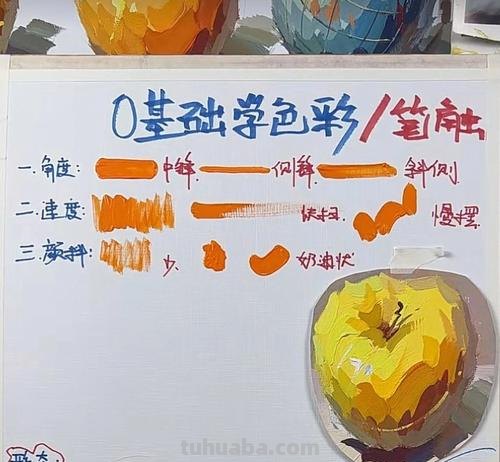 0基础学色彩/笔触
一.角度: 中锋. 侧锋. 斜侧.
二.速度: 快扫. 慢摆.
三.颜料: 少. 奶油状
tuhuaba.com